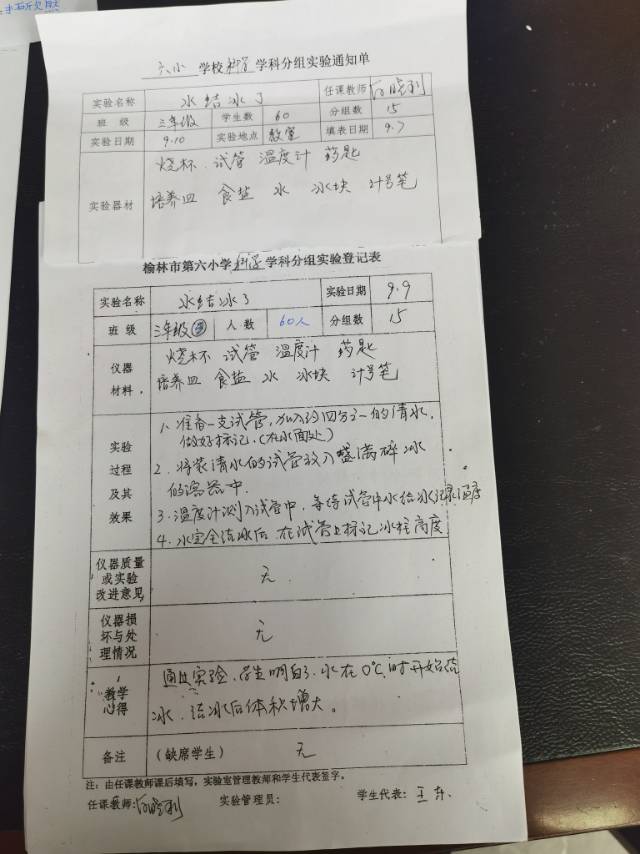 六小 学校科学学科分组实验通知单
实验名称 水结冰了 任课教师 晓利
班级 三年级 学生数 60 分组数 15
实验日期 9.10 实验地点 教室 填表日期 9.7
实验器材 烧杯 试管 温度计 药匙
培养皿 食盐 水 冰块 计号笔
榆林市第六小学科学学科分组实验登记表
实验名称 水结冰了 实验日期 9.9
班级 三年级 人数 60人 分组数 15
仪器材料 烧杯 试管 温度计 药匙
培养皿 食盐 水 冰块 计号笔
实验过程及其效果
1、准备一支试管,加入约四分之一的清水,
做好标记、(在水面处)
2、将装清水的试管放入盛满碎冰
的容器中.
3.温度计测入试管中,等待试管中水结冰记录温度
4.水完全结冰后 在试管上标记冰柱高度
仪器质量或实验改进意见 无
仪器损坏与处理情况 无
教学心得 通过实验,学生明白了,水在0℃时开始结
冰.结冰后体积增大。
备注 (缺席学生) 无
注:由任课教师课后填写,实验室管理教师和学生代表签字。
任课教师: 晓利 实验管理员: 学生代表: 王